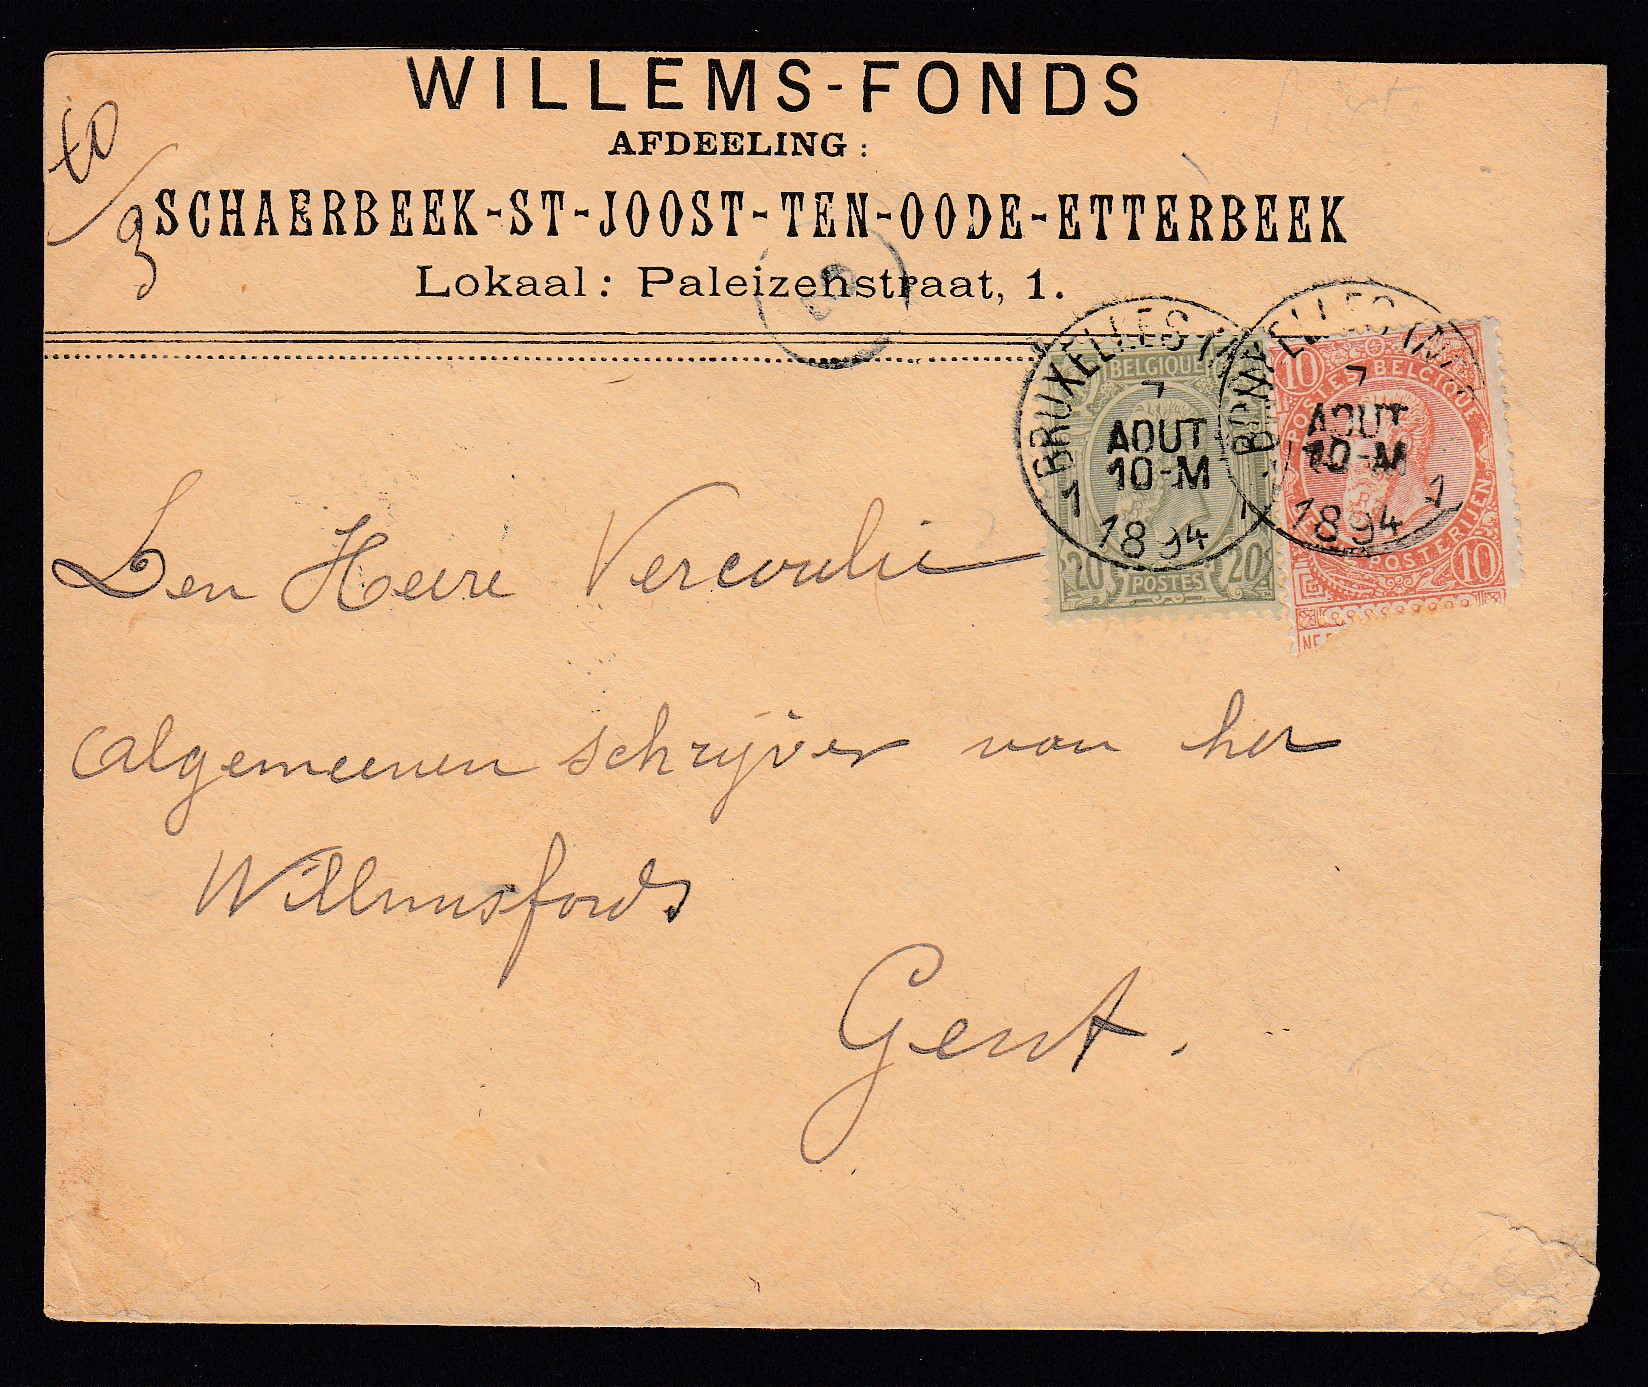 WILLEMS-FONDS
AFDEELING :
SCHAERBEEK-ST-JOOST-TEN-OODE-ETTERBEEK
Lokaal : Paleizenstraat, 1.
3
BRUXELLES
7
AOUT
10-M
1 1894 1
BRUXELLES
7
AOUT
10-M
1894 1
BELGIQUE
20 POSTES 20
10 POSTES BELGIQUE
POSTERIJEN 10
NE
Den Heere Vercoulie
Algemeenen schrijver van het
Willemsfonds
Gent.